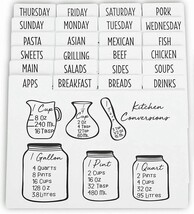 THURSDAY FRIDAY SATURDAY PORK
SUNDAY MONDAY TUESDAY WEDNESDAY
PASTA ASIAN MEXICAN FISH
SWEETS GRILLING BEEF CHICKEN
MAIN SALADS SIDES SOUPS
APPS BREAKFAST BREADS DRINKS
Kitchen
Conversions
1 Cup
8 Oz
240 Ml
16 Tbsp
1 Gallon
4 Quarts
8 Pints
16 Cups
128 Oz
3.8 Liters
1 Pint
2 Cups
16 Oz
32 Tbsp
480 Ml
1 Quart
2 Pints
4 Cups
32 Oz
.95 Liters